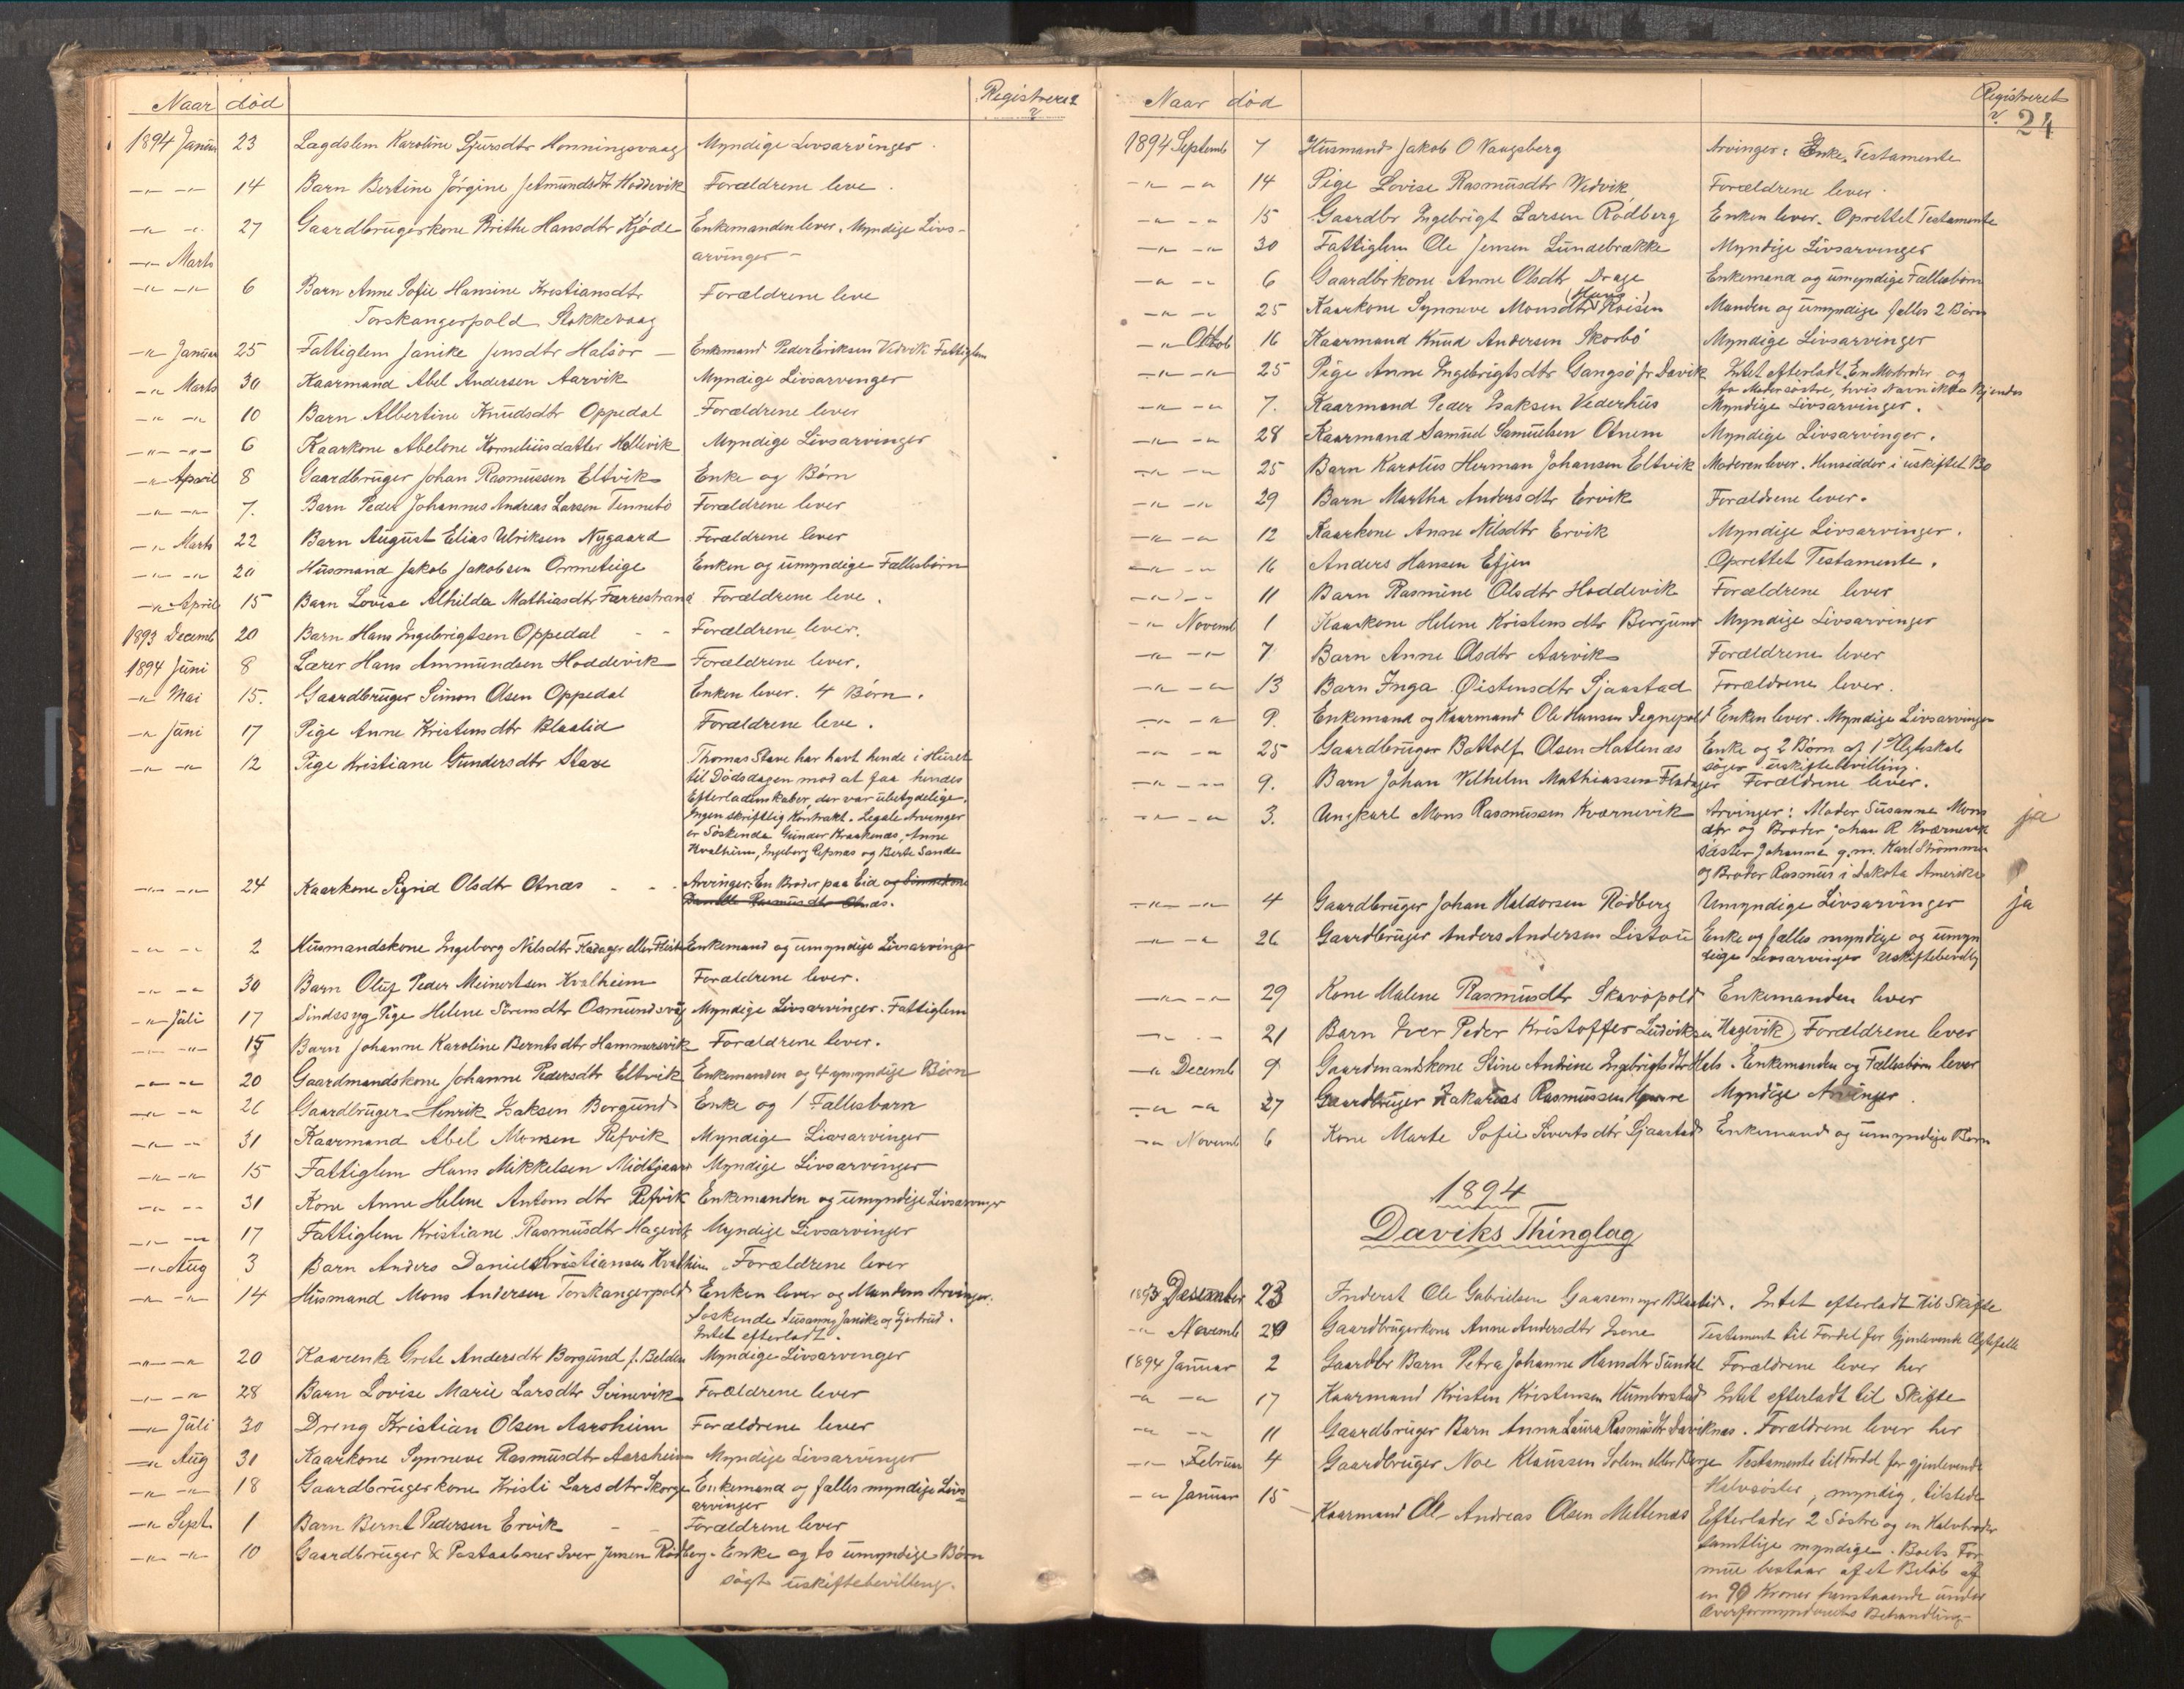 Naar død Registreret
1894 Januar 23 Lægdslem Karoline Sjursdtr Honningsvaag Myndige Livsarvinger
-"- -"- 14 Barn Bertine Jørgine Jetmundsdtr Hoddevik Forældrene leve.
-"- -"- 27 Gaardbrugerkone Brithe Hansdtr Kjøde Enkemanden lever. Myndige Livs-
-"- Marts arvinger -
-"- -"- 6 Barn Anne Sofie Hansine Kristiansdtr Forældrene leve
Torskangerpold Stokkevaag
-"- Januar 25 Fattiglem Janike Jensdtr Halsør - Enkemand Peder Eriksen Vedvik Fattiglem
-"- Marts 30 Kaarmand Abel Andersen Aarvik Myndige Livsarvinger
-"- -"- 10 Barn Albertine Knudsdtr Oppedal Forældrene lever
-"- -"- 6 Kaarkone Abelone Korneliusdatter Hellevik Myndige Livsarvinger
-"- April 8 Gaardbruger Johan Rasmussen Eltvik Enke og Børn
-"- -"- 7. Barn Peder Johannes Andreas Larsen Tennebø Forældrene lever
-"- Marts 22 Barn August Elias Ulriksen Nygaard Forældrene lever
-"- -"- 20 Husmand Jakob Jakobsen Ormeteige Enken og umyndige Fællesbørn
-"- April 15 Barn Lovise Alhilda Mathiasdtr Færrestrand Forældrene leve.
1893 Decemb 20 Barn Hans Ingebrigtsen Oppedal - - Forældrene lever.
1894 Juni 8 Lærer Hans Ammundsen Hoddevik Forældrene lever.
-"- Mai 15. Gaardbruger Simon Olsen Oppedal Enken lever. 4 Børn.
-"- Juni 17 Pige Anne Kristensdtr Blaalid Forældrene leve.
-"- -"- 12 Pige Kristiane Gundersdtr Stave Thomas Stave har havt hende i Huset
til Dødsdagen mod at faa hendes
Efterladenskaber, der var ubetydelige.
Ingen skriftlig Kontrakt. Legale Arvinger
er Søskende Gunder Kraakenæs, Anne
Kvalheim, Ingeborg Refnæs og Berte Sande
-"- -"- 24 Kaarkone Sigrid Olsdtr Otnæs - - Arvinger: En Broder paa Eid og
Rasmusdtr Otnæs.
-"- -"- 2 Husmandskone Ingeborg Nilsdtr Fladager eller Enkemand og umyndige Livsarvinger
-"- -"- 30 Barn Oluf Peder Meinertsen Kvalheim Forældrene lever.
-"- Juli 17 Sindssyg Pige Helene Sørensdtr Osmundsvåg Myndige Livsarvinger. Fattiglem
-"- -"- 15 Barn Johanne Karoline Berntsdtr Hammersvik Forældrene lever.
-"- -"- 20 Gaardmandskone Johanne Pedersdtr Eltvik Enkemanden og 4 umyndige Børn
-"- -"- 26 Gaardbruger Henrik Isaksen Borgund Enke og 1 Fællesbarn
-"- -"- 31 Kaarmand Abel Monsen Refvik Myndige Livsarvinger
-"- -"- 15 Fattiglem Hans Mikkelsen Midtgaard Myndige Livsarvinger
-"- -"- 31 Kone Anne Helene Antonsdtr Refvik Enkemanden og umyndige Livsarvinger
-"- -"- 17 Fattiglem Kristiane Rasmusdtr Hagevik Myndige Livsarvinger
-"- Aug 3 Barn Anders Daniel Kristiansen Kvalheim Forældrene lever
-"- -"- 14 Husmand Mons Andersen Torskangerpold Enken lever og Mandens Arvinger:
Søskende Susanna, Janike og Gjertrud.
Intet efterladt.
-"- -"- 20 Kaarenke Grete Andersdtr Borgund f. Belden Myndige Livsarvinger
-"- -"- 28 Barn Lovise Marie Larsdtr Sirnevik Forældrene lever
-"- Juli 30 Dreng Kristian Olsen Aarsheim Forældrene lever
-"- Aug 31 Kaarkone Synneve Rasmusdtr Aarsheim Myndige Livsarvinger
-"- -"- 18 Gaardbrugerkone Kristi Larsdtr Skorge Enkemand og fælles myndige Livs
arvinger
-"- Sept. 1 Barn Bernt Pedersen Ervik - - Forældrene lever
-"- -"- 10 Gaardbruger & Postaabner Iver Jensen Rødberg - Enke og to umyndige Børn
søgt uskiftebevilling.
Naar død Registreret
24
1894 Septemb 7 Husmand Jakob O Vaagsberg Arvinger: Enke, Testamente
-"- -"- 14 Pige Lovise Rasmusdtr Vedvik Forældrene lever
-"- -"- 15 Gaardbr Ingebrigt Larsen Rødberg Enken lever. Oprettet Testamente
-"- -"- 30 Fattiglem Ole Jensen Lundebrække Myndige Livsarvinger
-"- -"- 6 Gaardbrkone Anne Olsdtr Drage Enkemand og umyndige Fællesbørn
-"- -"- 25 Kaarkone Synneve Monsdtr Manden og umyndige fælles 2 Børn
-"- Oktob 16 Kaarmand Knud Andersen Skorbø Myndige Livsarvinger
-"- -"- 25 Pige Anne Ingebrigtsdtr Gangsø fr Davik Intet efterladt. En Morbroder og
to Mødersøstre, hvis Navn ikke Kjendes
-"- -"- 7. Kaarmand Peder Isaksen Vederhus Myndige Livsarvinger.
-"- -"- 28 Kaarmand Samuel Samuelsen Otnem Myndige Livsarvinger.
-"- -"- 25 Barn Karolus Herman Johansen Eltvik Moderen lever. Hensidder i uskiftet Bo
-"- -"- 29 Barn Martha Andersdtr Ervik Forældrene lever.
-"- -"- 12 Kaarkone Anne Nilsdtr Ervik Myndige Livsarvinger.
-"- -"- 16 Anders Hansen Efjen Oprettet Testamente.
-"- -"- 11 Barn Rasmine Olsdtr Hoddevik Forældrene lever
-"- Novemb 1 Kaarkone Helene Kristensdtr Borgund Myndige Livsarvinger
-"- -"- 7 Barn Anne Olsdtr Aarvik Forældrene lever
-"- -"- 13 Barn Inga Øistensdtr Sjaastad Forældrene lever.
-"- -"- 9. Enkemand og Kaarmand Ole Hansen Degnepold Enken lever. Myndige Livsarvinger
-"- -"- 25 Gaardbruger Battolf Olsen Hatlenæs Enke og 2 Børn af 1ste Ægteskab
søger uskiftebevilling.
-"- -"- 9. Barn Johan Vilhelm Mathiassen Fladager Forældrene lever.
-"- -"- 3. Ungkarl Mons Rasmussen Kværnevik Arvinger: Moder Susanne Mons ja
dtr og Broder Johan R Kværnevik
Søster Johanne g.m. Karl Strømmen
og Broder Rasmus i Dakota Amerika
-"- -"- 4 Gaardbruger Johan Haldorsen Rødberg Umyndige Livsarvinger ja
-"- -"- 26 Gaardbruger Anders Andersen Listou Enke og fælles myndige og umyn
dige Livsarvinger Uskiftebevilling
-"- -"- 29 Kone Malene Rasmusdtr Skavøpold Enkemanden lever
-"- -"- 21 Barn Iver Peder Kristoffer Ludviksen Hagevik) Forældrene lever
-"- Decemb 9 Gaardmandskone Stine Andrine Ingebrigtsdtr Hals. Enkemanden og Fællesbørn lever
-"- -"- 27 Gaardbruger Zakarias Rasmussen Myndige Arvinger.
-"- Novemb 6 Kone Marte Sofie Sivertsdtr Sjaastad Enkemand og umyndige Børn
1894
Daviks Thinglag
1893 Desember 23 Inderst Ole Gabrielsen Gaasemyr Blaalid. Intet efterladt til Skifte
-"- Novemb 20 Gaardbrugerkone Anne Andersdtr Isene Testament til Fordel for Gjenlevende Ægtefælle
1894 Januar 2 Gaardbr Barn Petra Johanne Hansdtr Sundal Forældrene lever her
-"- -"- 17 Kaarmand Kristen Kristensen Humborstad Intet efterladt til Skifte
-"- -"- 11 Gaardbruger Barn Anna Laura Rasmusdtr Daviknæs. Forældrene lever her
-"- Februar 4 Gaardbruger Noe Klaussen Solem eller Berge Testamente til Fordel for gjenlevende
Halvsøster, myndig, tilstede
-"- Januar 15 Kaarmand Ole Andreas Olsen Mettenæs Efterlader 2 Søstre og en Halvbroder
samtlige myndige. Boets For
mue bestaar af et Beløb af
en 90 Kroner henstaaende under
Overformynderiets Behandling-